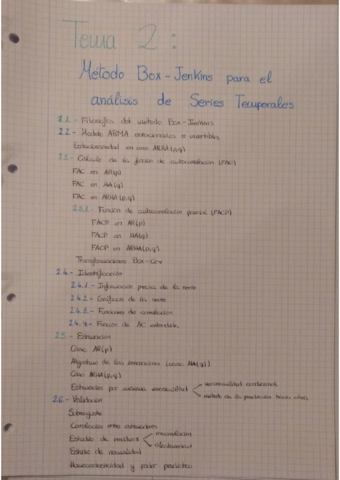 Tema 2:
Metodo Box-Jenkins para el
análisis de Series Temporales
2.1.- Filosofía del método Box-Jenkins
2.2.- Modelo ARMA estacionarios e invertibles
Estacionariedad en una ARMA(p,q)
2.3.- Cálculo de la función de autocorrelación (FAC)
FAC en AR(p)
FAC en MA(q)
FAC en ARMA(p,q)
2.3.1.- Función de autocorrelación parcial (FACP)
FACP en AR(p)
FACP en MA(q)
FACP en ARMA(p,q)
Transformaciones Box-Cox
2.4.- Identificación
2.4.1.- Información previa de la serie
2.4.2.- Gráfica de la serie
2.4.3.- Funciones de correlación
2.4.4.- Función de AC extendida
2.5.- Estimación
Caso AR(p)
Algoritmo de las innovaciones (caso MA(q))
Caso ARMA(p,q)
Estimación por máxima verosimilitud
verosimilitud condicional
método de la predicción hacia atrás
2.6.- Validación
Sobreajuste
Correlación entre estimadores
Estudio de residuos
Estudio de normalidad
Homocedasticidad y poder predictivo